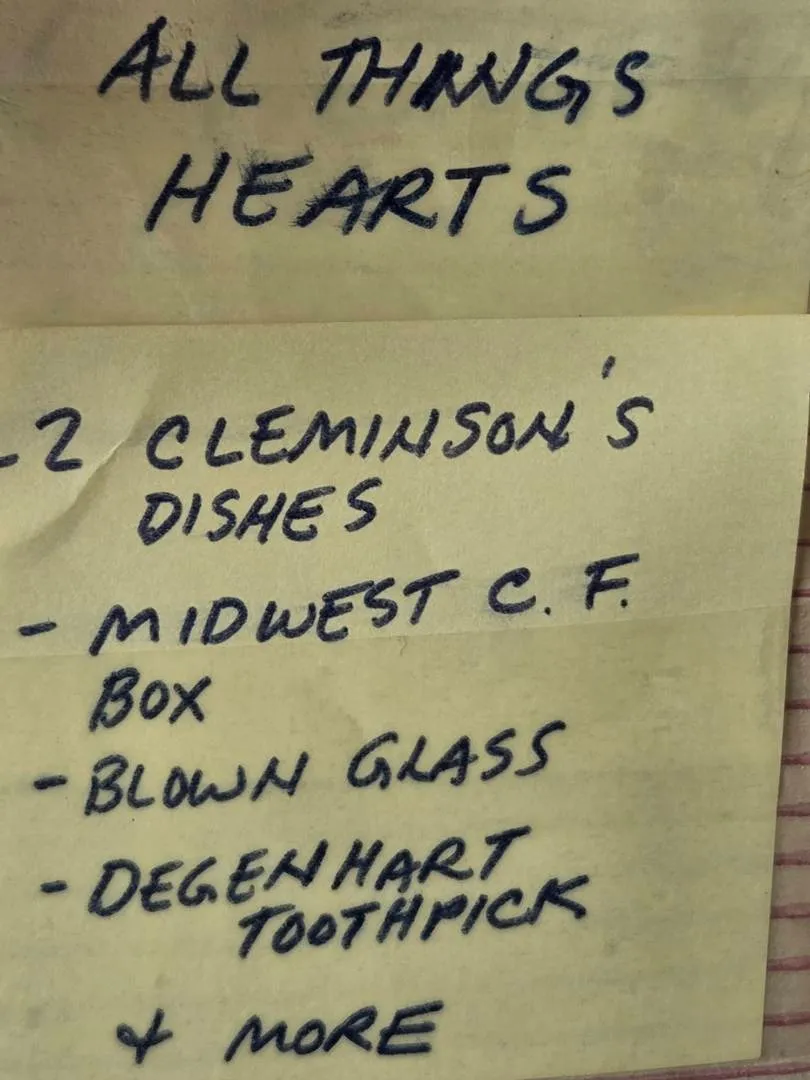 ALL THINGS
HEARTS
- 2 CLEMINSON'S
DISHES
- MIDWEST C. F.
BOX
- BLOWN GLASS
- DEGENHART
TOOTHPICK
& MORE